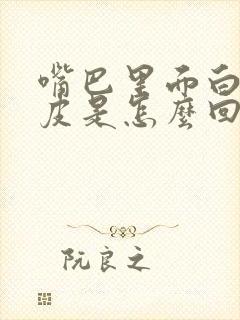 嘴巴里面白
皮是怎麼回
阮良之